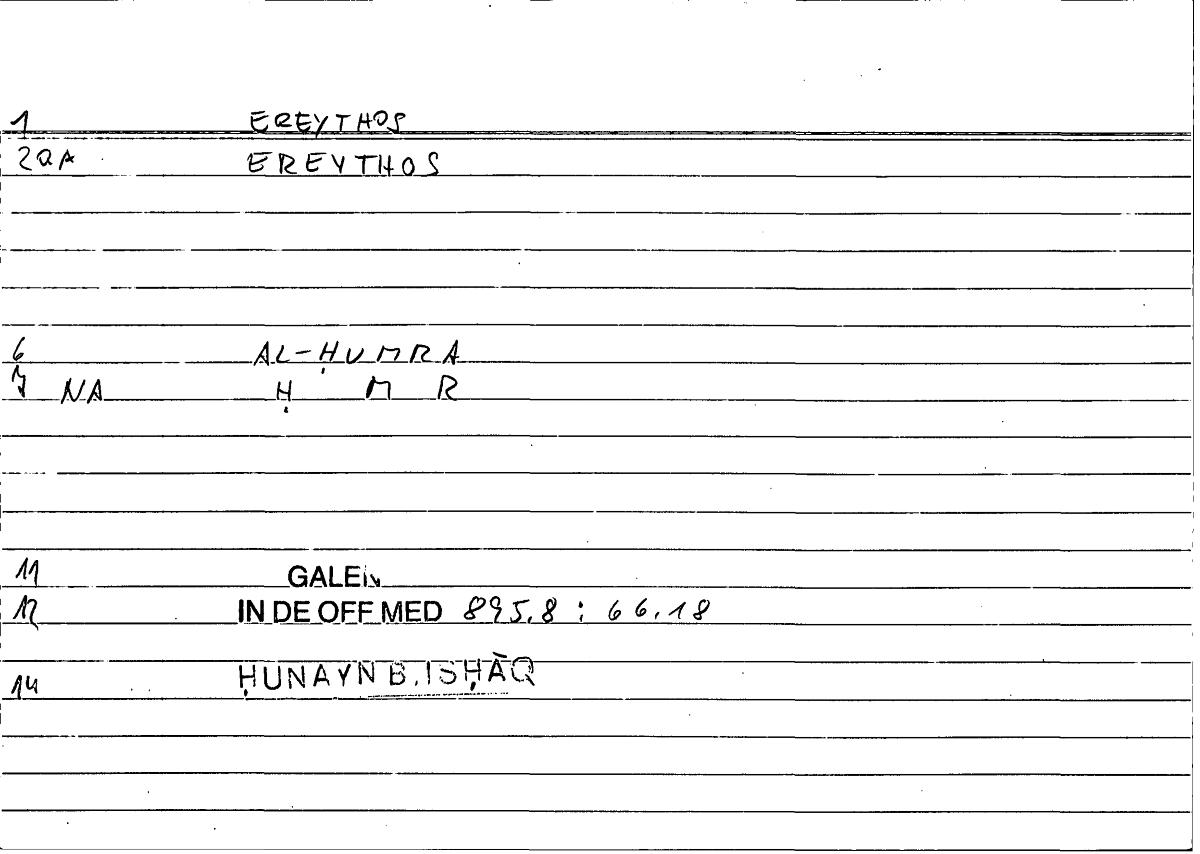 1 EREYTHOS
2QA EREYTHOS
6 AL-ḤUMRA
7 NA Ḥ M R
11 GALEN
12 IN DE OFF MED 895.8 : 66.18
14 ḤUNAYN B. ISḤĀQ